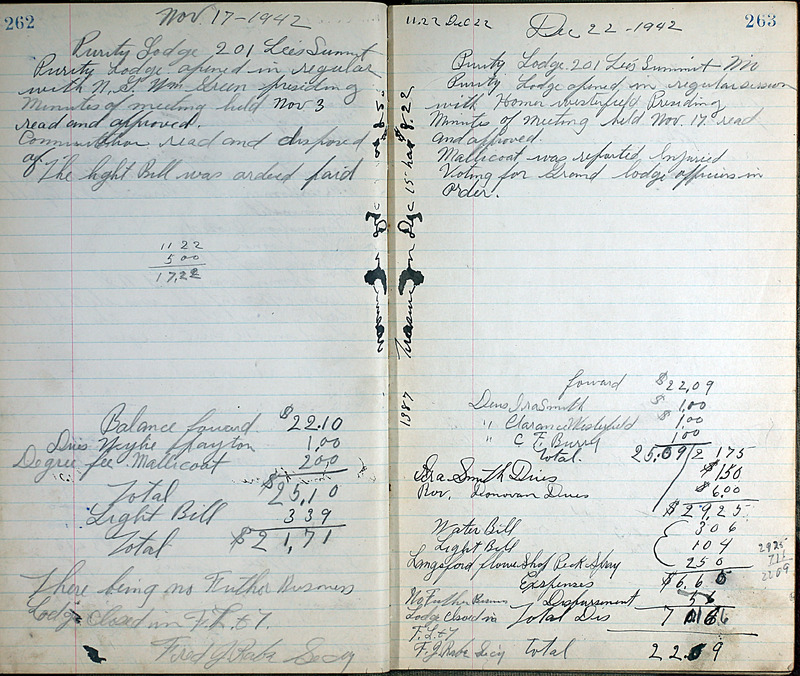 262
Nov 17-1942
Purity Lodge 201 Lees Summit
Purity Lodge opened in regular
with N. G. Wm Green presiding
Minutes of meeting held Nov 3
read and approved.
read and disposed
of
The light Bill was ardeed paid
11 22
5 00
17,22
Balance foward $22.10
Dues 1,00
Degree fee Mallicoat 200
Total $25,10
Light Bill 339
Total $21,71
There being no Futher Business
Lodge Closed in F. L. & T.
Fred J Rabe Secy
11.22 Dec 22
Dec 22-1942
263
Purity Lodge 201 Lees Summit Mo
Purity Lodge opened in regular session
with Homer Presiding
Minutes of Meeting held Nov. 17. read
and approved.
Mallicoat was reported Injured
Voting for Grand lodge officers in
order.
Dec 15 had $8.22
1387
foward $22,09
Dues Ira Smith $1,00
" Clarance $1,00
" C F. 1.00
Total. 25.09 2 175
Ira Smith Dues $1.50
Rev. Donovan Dues $6.00
$29,25
Water Bill 306
Light Bill 104
Flower Shop 250
Expenses $6.6
2925
711
2209
No Futher Disbursment
Lodge Closed in Total Dis
F. L & T
F. J Rabe Secy Total